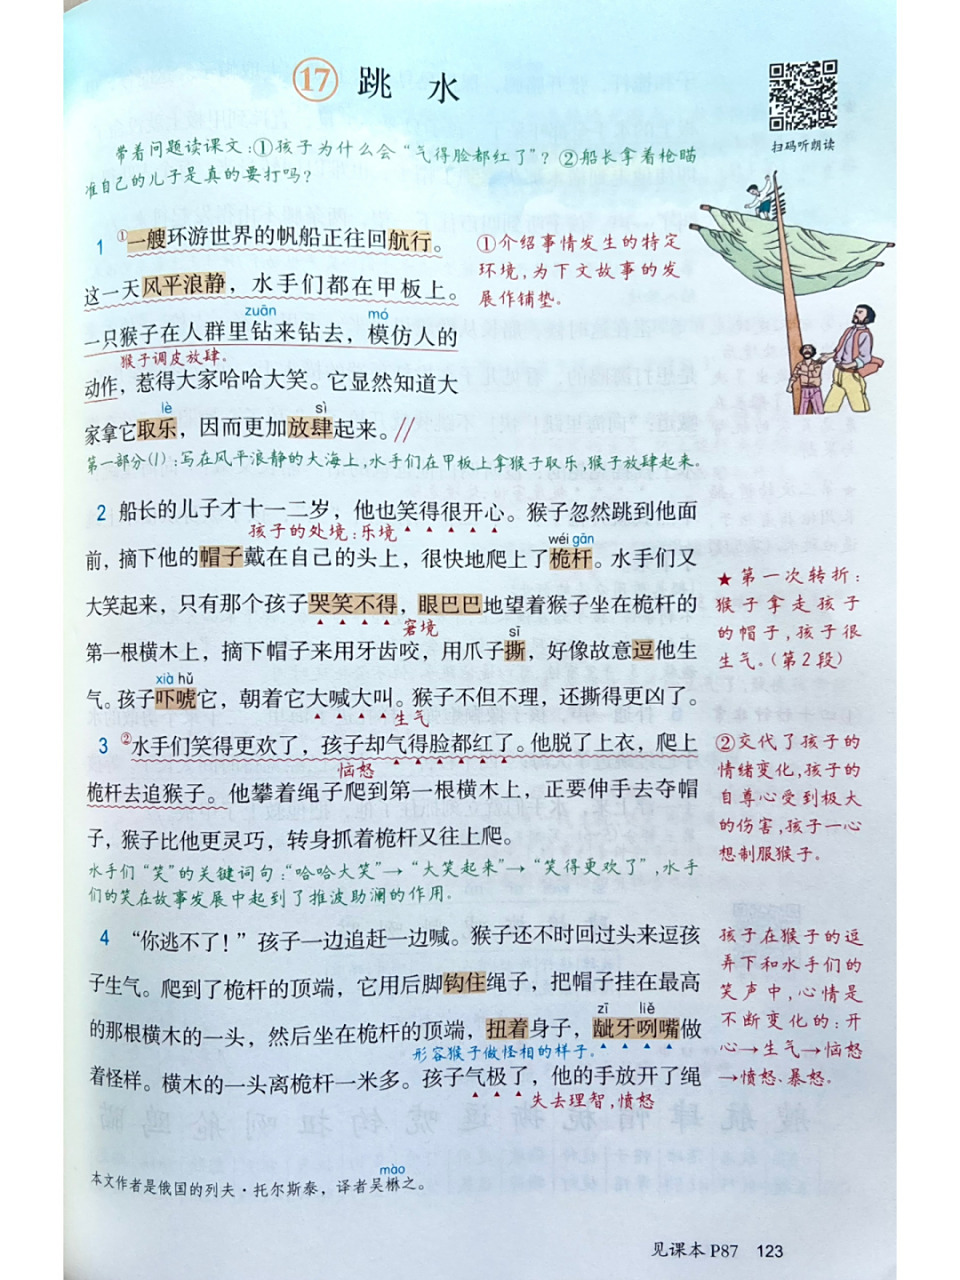 17 跳 水
扫码听朗读
带着问题读课文:①孩子为什么会“气得脸都红了”?②船长拿着枪瞄
准自己的儿子是真的要打吗?
1 ①一艘环游世界的帆船正往回航行。
这一天风平浪静,水手们都在甲板上。
zuān mó
一只猴子在人群里钻来钻去,模仿人的
猴子调皮放肆。
动作,惹得大家哈哈大笑。它显然知道大
lè sì
家拿它取乐,因而更加放肆起来。//
①介绍事情发生的特定
环境,为下文故事的发
展作铺垫。
第一部分(1):写在风平浪静的大海上,水手们在甲板上拿猴子取乐,猴子放肆起来。
2 船长的儿子才十一二岁,他也笑得很开心。猴子忽然跳到他面
孩子的处境:乐境
wéi gān
前,摘下他的帽子戴在自己的头上,很快地爬上了桅杆。水手们又
大笑起来,只有那个孩子哭笑不得,眼巴巴地望着猴子坐在桅杆的
窘境
sī
第一根横木上,摘下帽子来用牙齿咬,用爪子撕,好像故意逗他生
xià hǔ
气。孩子吓唬它,朝着它大喊大叫。猴子不但不理,还撕得更凶了。
生气
★第一次转折:
猴子拿走孩子
的帽子,孩子很
生气。(第2段)
3 ②水手们笑得更欢了,孩子却气得脸都红了。他脱了上衣,爬上
恼怒
桅杆去追猴子。他攀着绳子爬到第一根横木上,正要伸手去夺帽
子,猴子比他更灵巧,转身抓着桅杆又往上爬。
②交代了孩子的
情绪变化,孩子的
自尊心受到极大
的伤害,孩子一心
想制服猴子。
水手们“笑”的关键词句:“哈哈大笑”→“大笑起来”→“笑得更欢了”,水手
们的笑在故事发展中起到了推波助澜的作用。
4 “你逃不了!”孩子一边追赶一边喊。猴子还不时回过头来逗孩
子生气。爬到了桅杆的顶端,它用后脚钩住绳子,把帽子挂在最高
zī liě
的那根横木的一头,然后坐在桅杆的顶端,扭着身子,龇牙咧嘴做
形容猴子做怪相的样子。
着怪样。横木的一头离桅杆一米多。孩子气极了,他的手放开了绳
失去理智,愤怒
孩子在猴子的逗
弄下和水手们的
笑声中,心情是
不断变化的:开
心→生气→恼怒
→愤怒、暴怒。
mào
本文作者是俄国的列夫·托尔斯泰,译者吴楙之。
见课本 P87 123